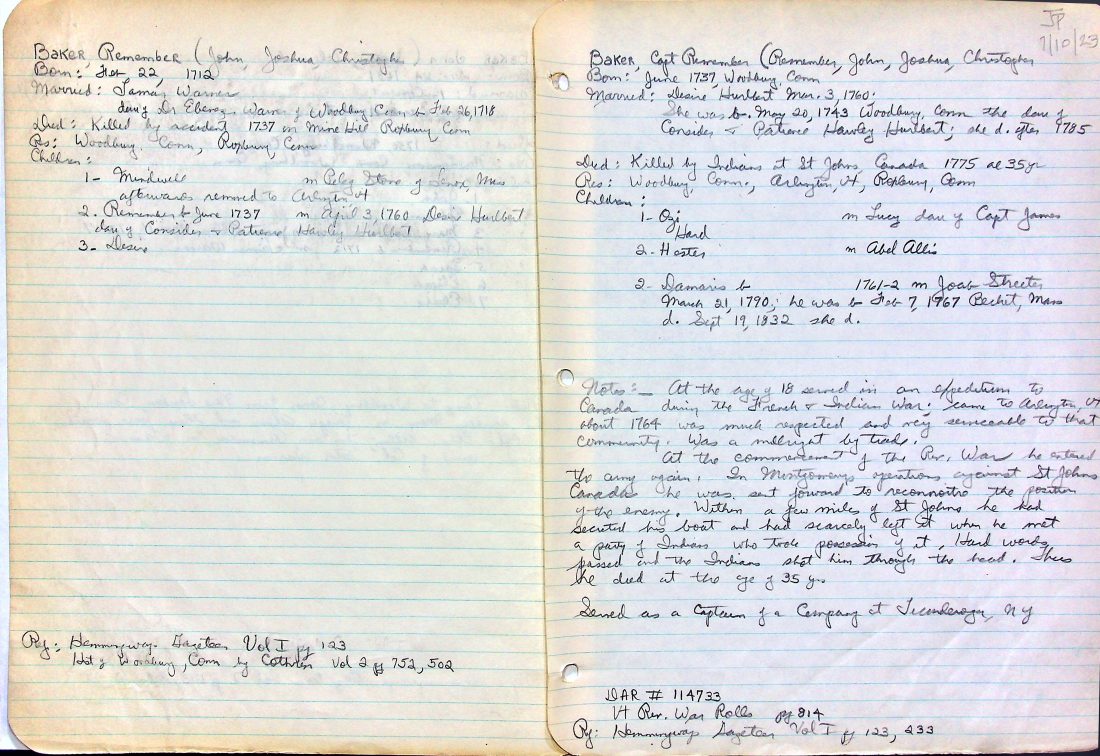 Baker, Remember (John, Joshua, Christopher)
Born: Feb 22, 1712
Married: Tamar Warner
dau of Dr Ebenezer Warner of Woodbury Conn b Feb 26, 1718
Died: Killed by accident 1737 on Mine Hill Roxbury Conn
Res: Woodbury Conn, Roxbury, Conn
Children:
1- Mindwell m Peleg Stone of Lenox, Mass
afterwards removed to Arlington Vt
2. Remember b June 1737 m April 3, 1760 Desire Hurlbert
dau of Consider & Patience Hawley Hurlbert
3- Desire
Ref: Hemmingways Gazeteer Vol I pg 123
Hist of Woodbury, Conn by Cothren Vol 2 pg 752, 502
JP
7/10/23
Baker, Capt Remember (Remember, John, Joshua, Christopher
Born: June 1737, Woodbury Conn
Married: Desire Hurlbert Mar. 3, 1760.
She was b. May 20, 1743 Woodbury, Conn the dau of
Consider & Patience Hawley Hurlbert; she d. after 1785
Died: Killed by Indians at St Johns Canada 1775 ae 35 yr
Res: Woodbury Conn, Arlington, Vt, Roxbury, Conn
Children:
1- Ozi m Lucy dau of Capt James
Hard
2- Hester m Abel Allis
2- Damaris b 1761-2 m Joab Streeter
March 21, 1790; he was b Feb 7, 1967 Becket, Mass
d. Sept 19, 1832 she d.
Notes:- At the age of 18 served in an expedition to
Canada during the French & Indian War; came to Arlington, Vt
about 1764 was much respected and very serviceable to that
community. Was a millright by trade.
At the commencement of the Rev. War he entered
the army again. In Montgomerys operations against St Johns
Canada he was sent forward to reconnoitre the position
of the enemy. Within a few miles of St Johns he had
secreted his boat and had scarcely left it when he met
a party of Indians who took possession of it. Hard words
passed and the Indians shot him through the head. Thus
he died at the age of 35 yr.
Served as a Captain of a Company at Ticonderoga, NY
DAR # 114733
Vt Rev. War Rolls pg 814
Ref: Hemmingways Gazeteer Vol I pg 123, 233